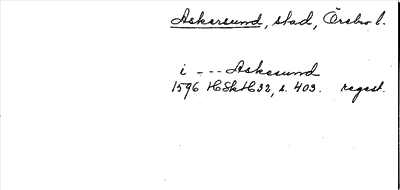 Askersund, stad, Örebro l.
i --- Askesund
1596 HSkH32, s. 403. regest.